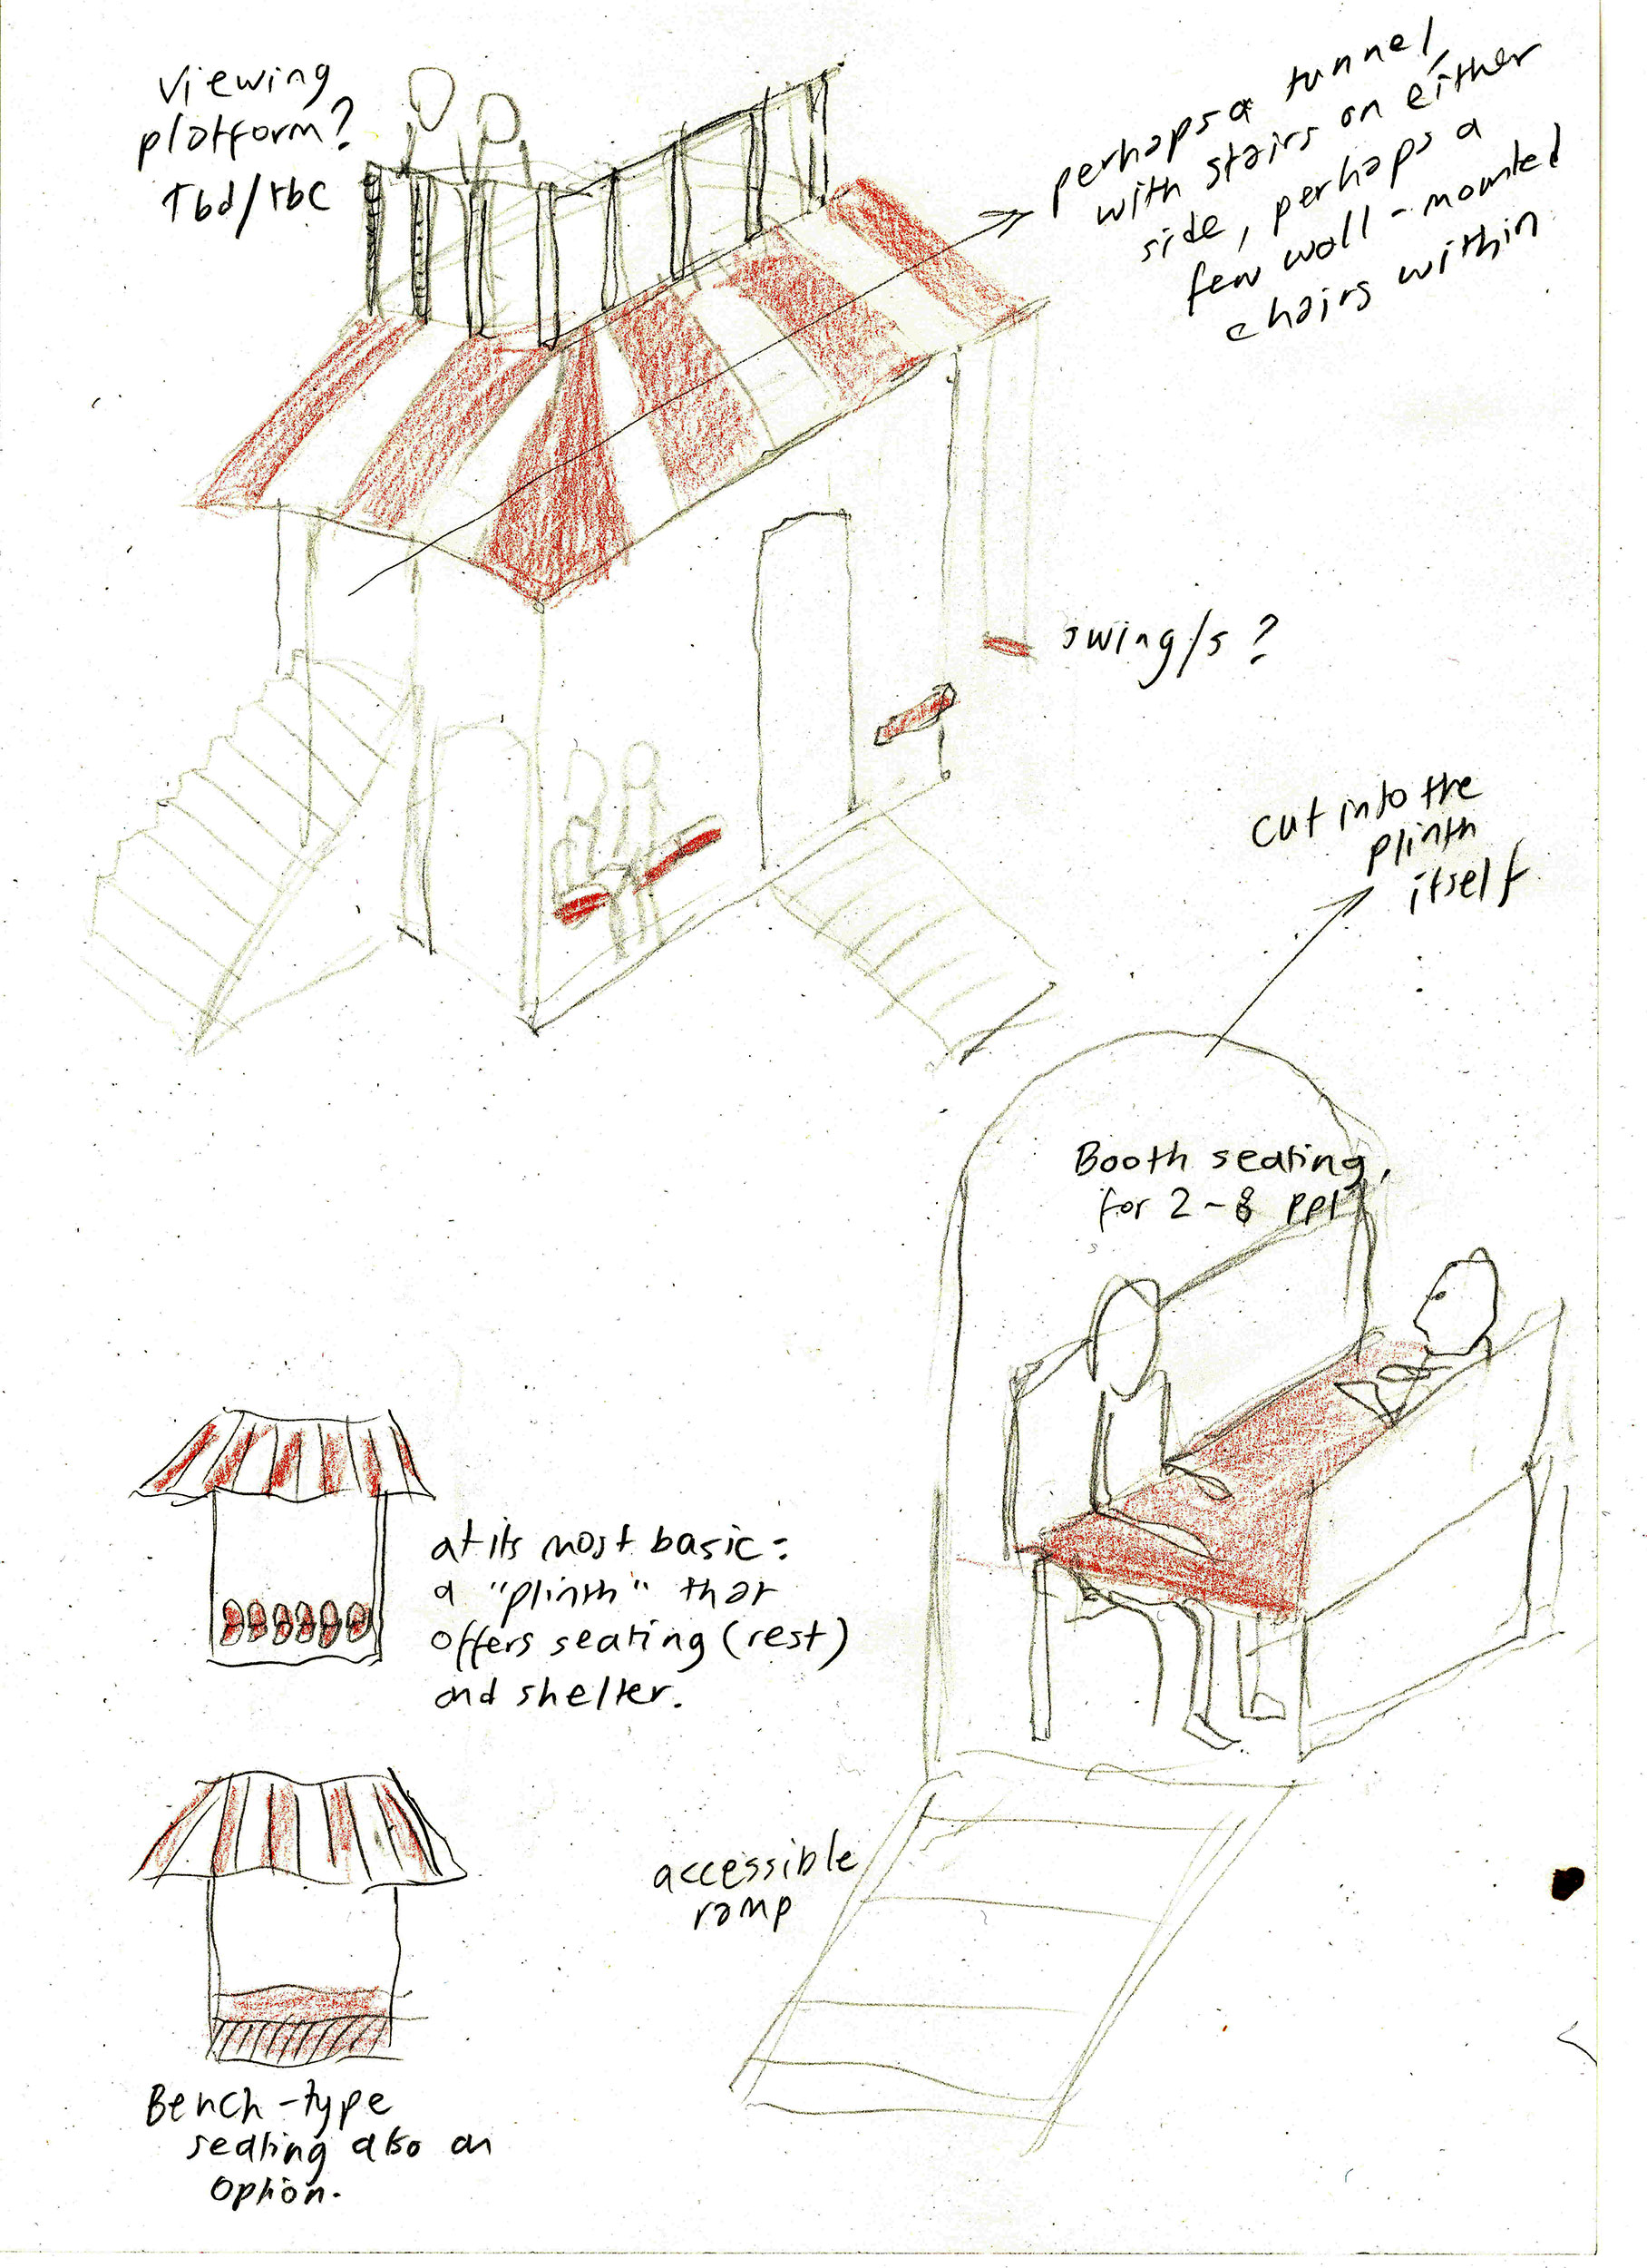 Viewing
platform?
Tbd/tbc
perhaps a tunnel,
with stairs on either
side, perhaps a
few wall-mounted
chairs within
swing/s?
cut into the
plinth
itself.
Booth seating,
for 2-8 ppl
at its most basic:
a "plinth" that
offers seating (rest)
and shelter.
accessible
ramp
Bench-type
seating also an
option.